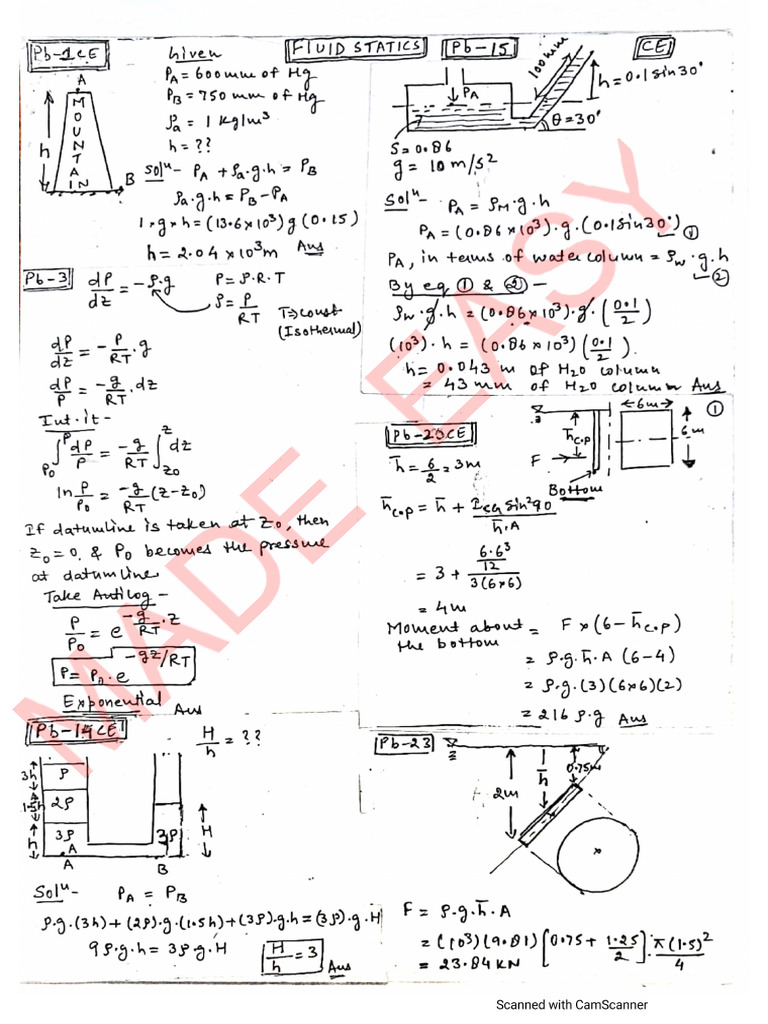 FLUID STATICS
CE
Pb-1CE
A
MOUNTAIN
h
B
Given
PA = 600 mm of Hg
PB = 750 mm of Hg
ρa = 1 kg/m³
h = ??
Solⁿ- PA + ρa.g.h = PB
ρa.g.h = PB - PA
1.g×h = (13.6×10³)g(0.15)
h = 2.04×10³m Ans
Pb-3
dP/dz = -ρ.g
P = ρ.R.T
ρ = P/RT
T⇒const
(Isothermal)
dP/dz = -P/RT.g
dP/P = -g/RT.dz
Int. it-
∫P0^P dP/P = -g/RT ∫z0^z dz
ln P/P0 = -g/RT (z-z0)
If datumline is taken at z0, then
z0=0, & P0 becomes the pressure
at datumline
Take Antilog-
P/P0 = e^(-g/RT.z)
P = P0.e^(-gz/RT)
Exponential Ans
Pb-14CE
H/h = ??
3h
ρ
1.5h
2ρ
h
3ρ
A
A
3ρ
B
H
Solⁿ- PA = PB
ρ.g.(3h)+(2ρ).g.(1.5h)+(3ρ).g.h=(3ρ).g.H
9ρ.g.h = 3ρ.g.H
H/h = 3 Ans
Pb-15
PA
100mm
h=0.1sin30°
θ=30°
S=0.86
g = 10 m/s²
Solⁿ- PA = ρM.g.h
PA = (0.86×10³).g.(0.1sin30°) ①
PA, in terms of water column = ρw.g.h ②
By eq ① & ②-
ρw.g.h = (0.86×10³).g.(0.1/2)
(10³).h = (0.86×10³)(0.1/2).
h = 0.043 m of H2O column
= 43 mm of H2O column Ans
①
h̄c.p
F
Bottom
6m
6m
h̄ = 6/2 = 3m
h̄c.p = h̄ + ICG sin²90/h̄.A
= 3 + (6.6³/12)/3(6×6)
= 4m
Moment about the bottom = F×(6-h̄c.p)
= ρ.g.h̄.A (6-4)
= ρ.g.(3)(6×6)(2)
= 216 ρ.g Ans
Pb-23
2m
h̄
0.75m
F = ρ.g.h̄.A
= (10³)(9.81)[0.75+1.25/2].π(1.5)²/4
= 23.84 KN
MADE EASY
Scanned with CamScanner